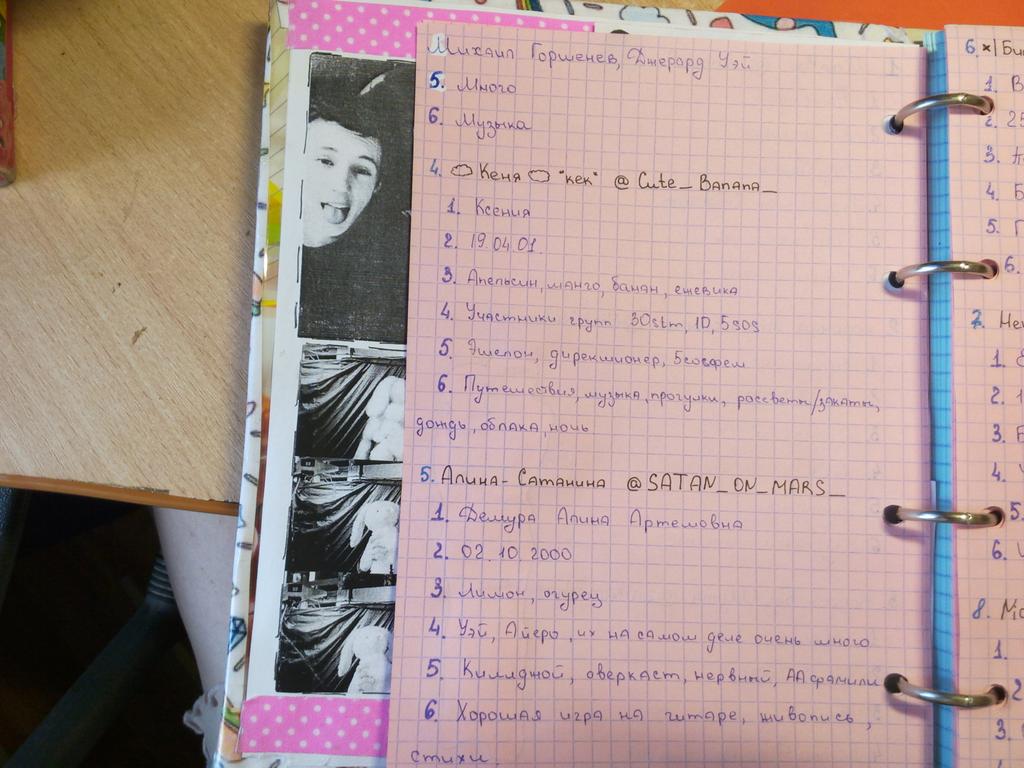 Михаил Горшенев, Джерард Уэй
5. Много
6. Музыка
4. Кеня "кек" @ Cute_Banana_
1. Ксения
2. 19.04.01.
3. Апельсин, манго, банан, ежевика
4. Участники групп 30stm, 1D, 5sos
5. Эшелон, дирекшионер, 5сосфем
6. Путешествия, музыка, прогулки, рассветы/закаты,
дождь, облака, ночь
5. Алина-Сатанина @SATAN_ON_MARS_
1. Демура Алина Артемовна
2. 02.10.2000
3. Лимон, огурец
4. Уэй, Айеро, их на самом деле очень много
5. Киллджой, оверкаст, нервный, ААфамили
6. Хорошая игра на гитаре, живопись,
стихи.
6.
1.
2. 25
3.
4.
5.
6.
7.
1.
2. 1
3.
4.
5.
6.
8.
1.
2
3.